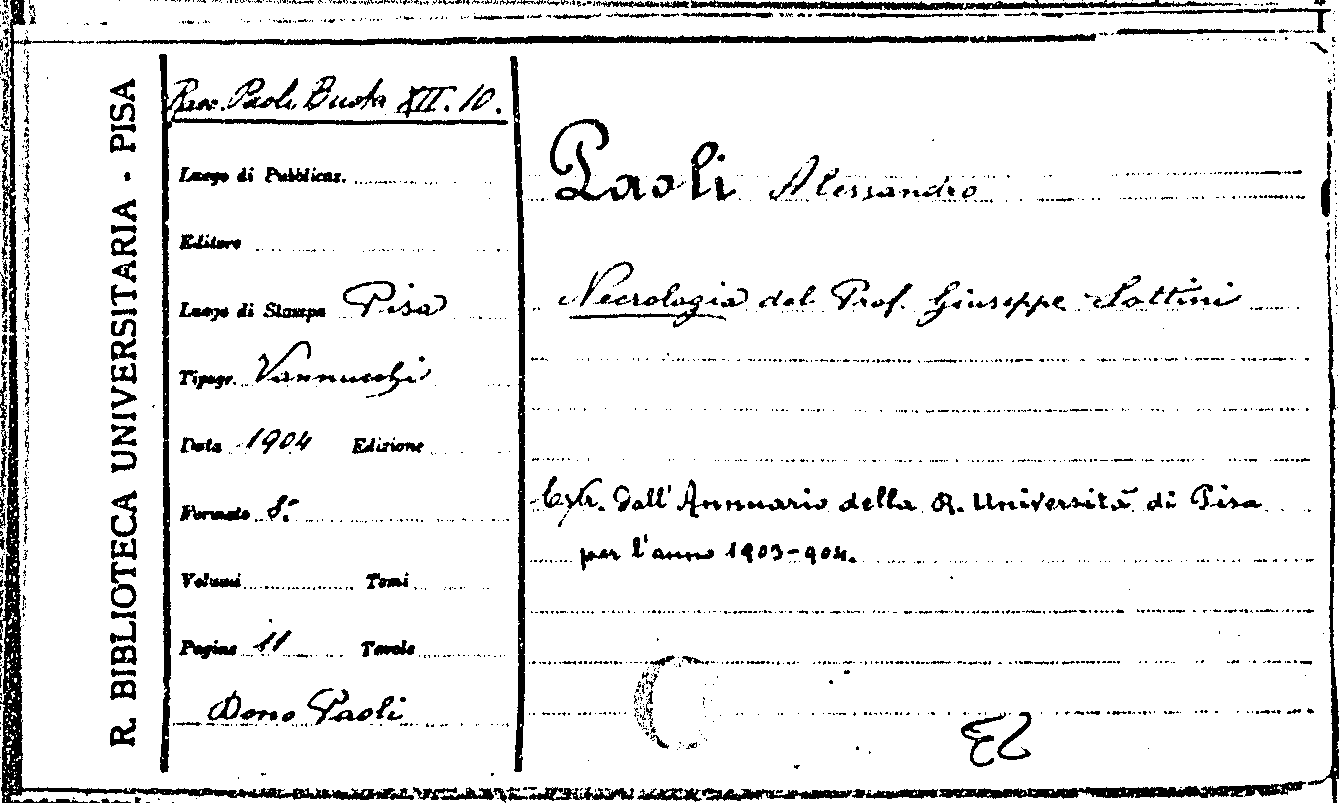 R. BIBLIOTECA UNIVERSITARIA - PISA
Racc. Paoli Busta XII. 10.
Luogo di Pubblicaz.
Editore
Luogo di Stampa Pisa
Tipogr. Vannucchi
Data 1904 Edizione
Formato 8.°
Volumi Tomi
Pagine 11 Tavole
Dono Paoli
Paoli Alessandro
Necrologia del Prof. Giuseppe Sottini
Estr. dall'Annuario della R. Università di Pisa
per l'anno 1903-904.